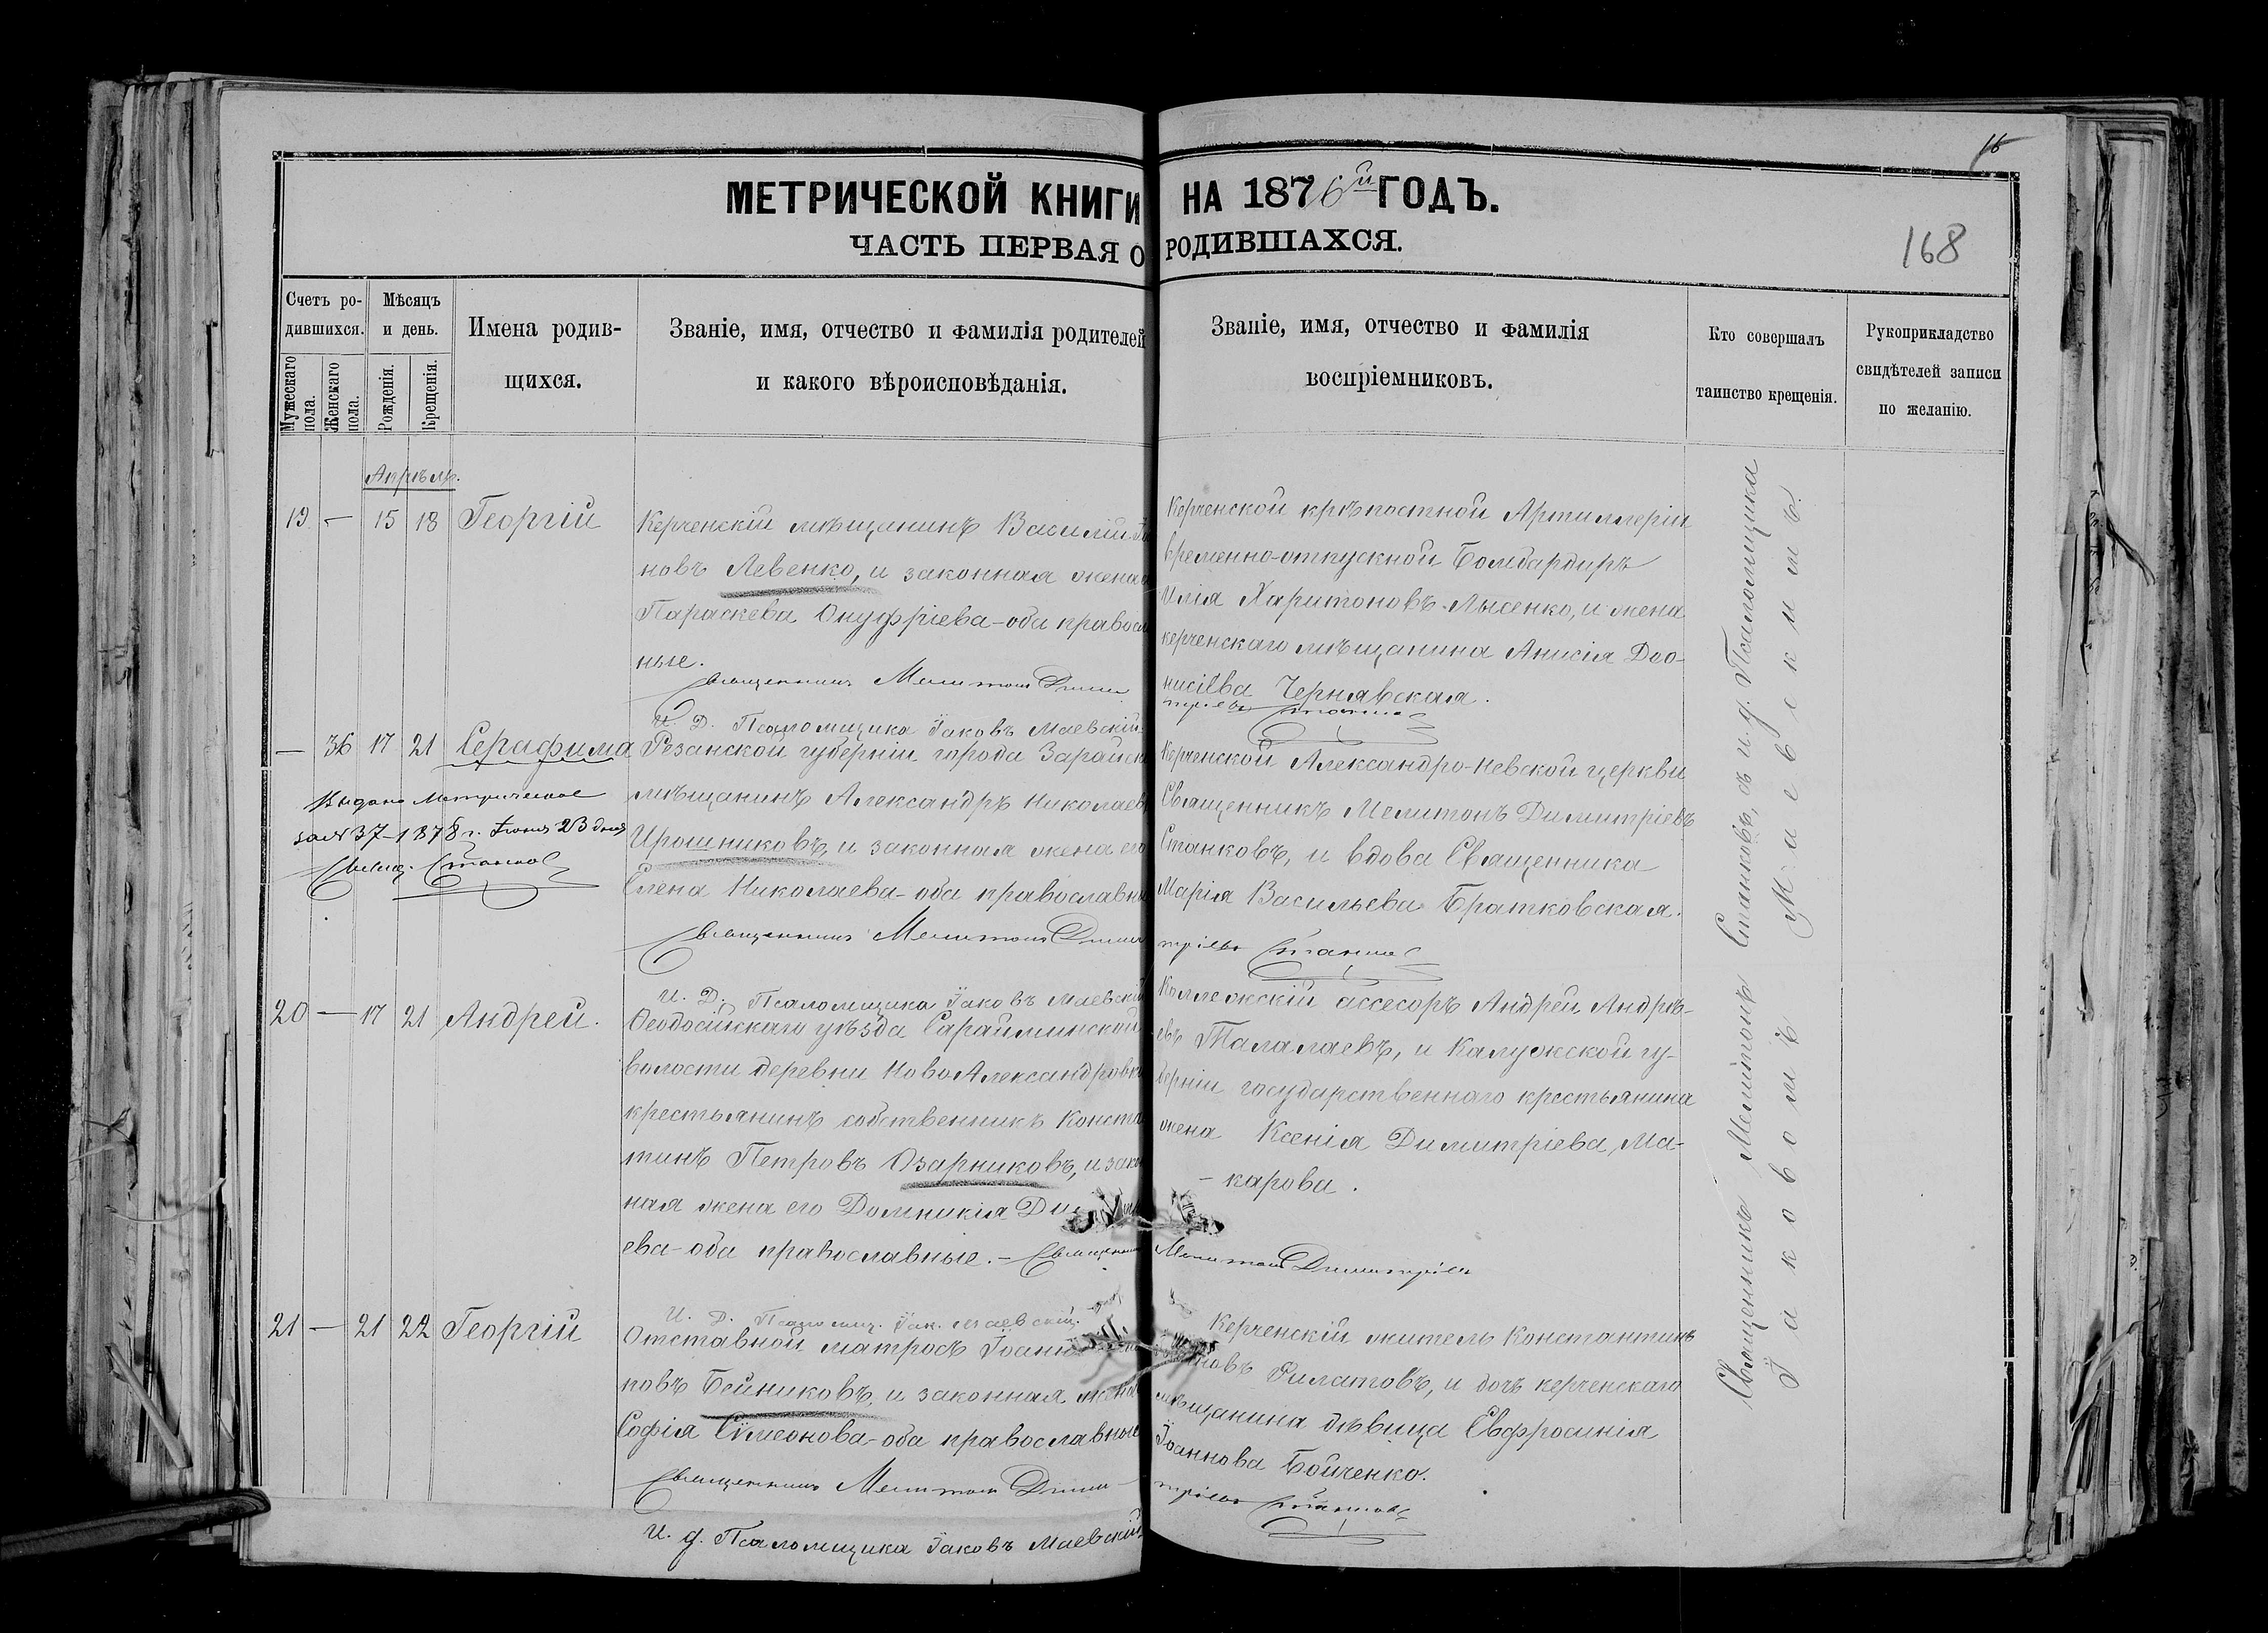 16
МЕТРИЧЕСКОЙ КНИГИ НА 1876й ГОДЪ.
ЧАСТЬ ПЕРВАЯ О РОДИВШАХСЯ.
168
Счетъ ро-
дившихся.
Мужескаго пола.
Женскаго пола.
Мѣсяцъ
и день.
Рожденія.
Крещенія.
Имена родив-
щихся.
Званіе, имя, отчество и фамилія родителей
и какого вѣроисповѣданія.
Званіе, имя, отчество и фамилія
воспріемниковъ.
Кто совершалъ
таинство крещенія.
Рукоприкладство
свидѣтелей записи
по желанію.
Апрѣль.
19 — 15 18 Георгій
Керченскій мѣщанинъ Василій
новъ Левенко, и законная жена
Параскева Онуфріева-оба правосл
ные.
Священникъ Мелитонъ Дими
И. Д. Псаломщика Іаковъ Маевскій
Керченской крѣпостной Артиллеріи
временно-отпускной Бомбардиръ
Илія Харитоновъ Лысенко, и жена
керченскаго мѣщанина Анисія Дио-
нисіева Чернявская.
тріевъ Станковъ
— 36 17 21 Серафима
Выдано Метрическое
за № 37-1878 г. Іюня 23 дня
Свящ. Станковъ
Резанской губерніи города Зарайск
мѣщанинъ Александръ Николаев
Ирошниковъ, и законная жена его
Елена Николаева-оба православны
Священникъ Мелитонъ Дими
И. Д. Псаломщика Іаковъ Маевскій
Керченской Александро-Невской церкви
Священникъ Мелитонъ Димитріевъ
Станковъ, и вдова Священника
Марія Васильева Братковская.
тріевъ Станковъ
20 — 17 21 Андрей.
Ѳеодосійскаго уѣзда Сарайминской
волости деревни НовоАлександровк
крестьянинъ собственникъ Конста
тинъ Петровъ Озарниковъ, и зако
ная жена его Домникія Ди
ева-оба православные.- Священникъ
И. Д. Псаломщ. Іак. Маевскій.
Коллежскій ассесоръ Андрей Андрѣ-
евъ Талалаевъ, и Калужской гу-
берніи государственнаго крестьянина
жена Ксенія Димитріева Ма-
-карова.
Мелитонъ Димитріевъ
21 — 21 22 Георгій
Отставной матросъ Іоанн
новъ Бейниковъ, и законная жена
Софія Сѵмеонова-оба православные
Священникъ Мелитонъ Дими-
И. д. Псаломщика Іаковъ Маевскій
Керченскій житель Константинъ
новъ Филатовъ, и дочь керченскаго
мѣщанина дѣвица Евфросинія
Іоаннова Бойченко.
тріевъ Станковъ
Священникъ Мелитонъ Станковъ, съ и. д. Псаломщика
Іаковомъ Маевскимъ.